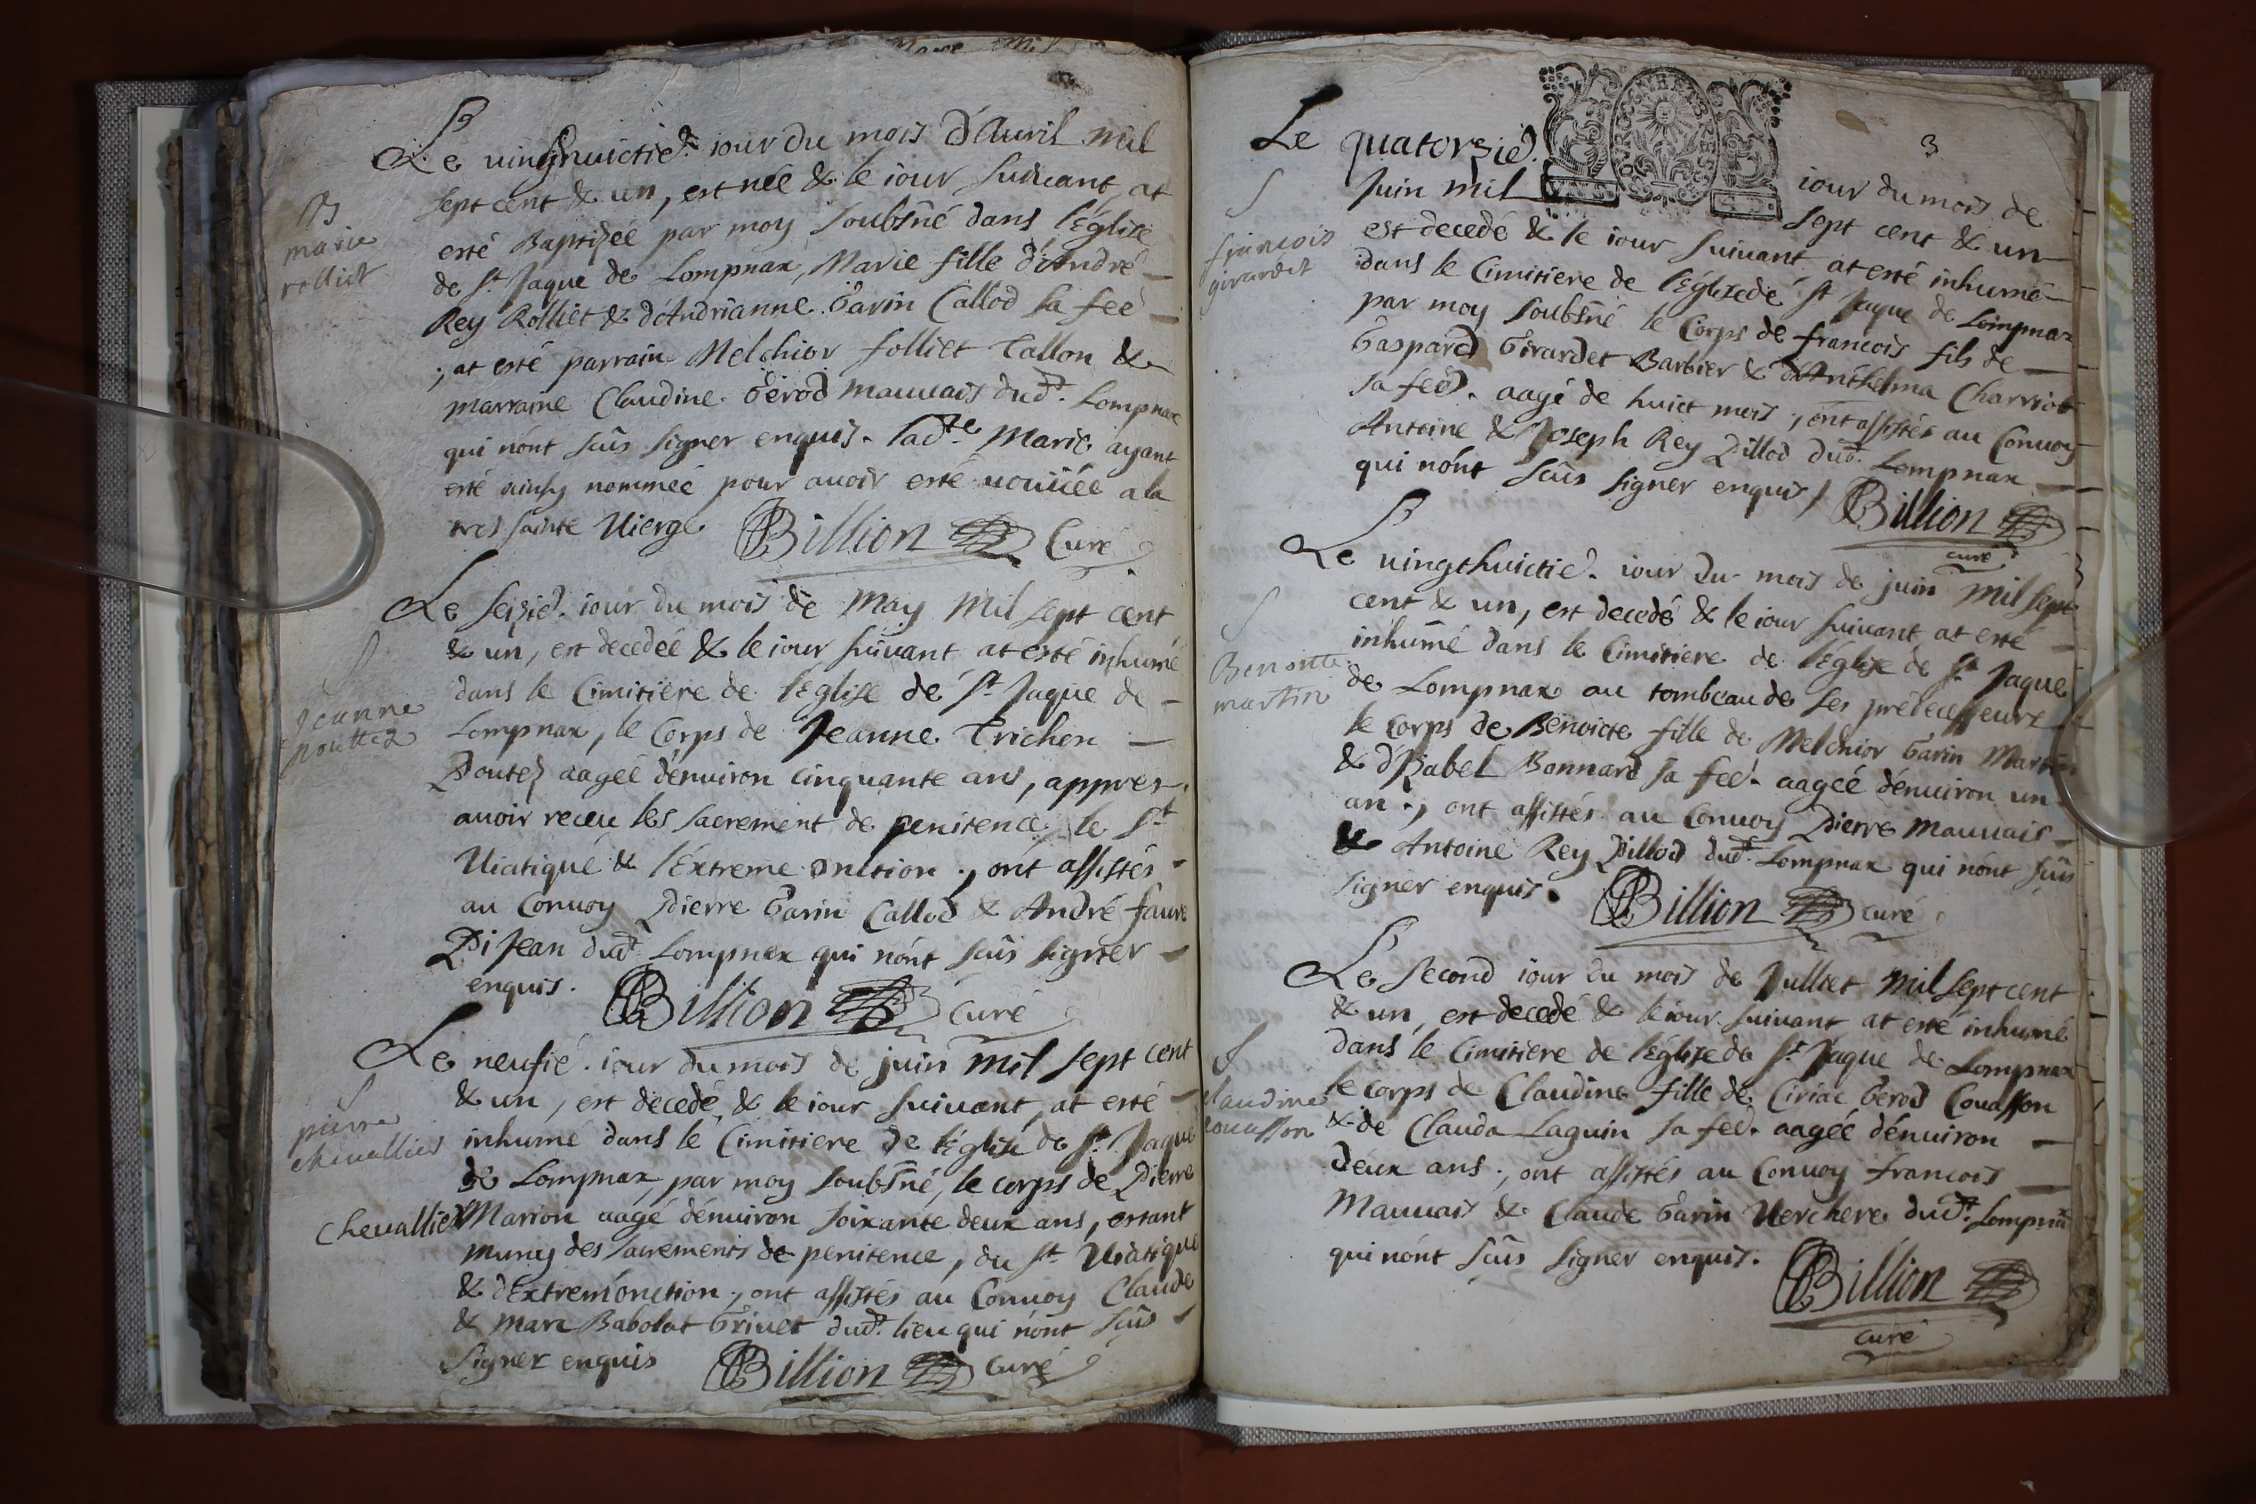 Le vingthuictie. iour du mois d'Auril mil
sept cent & un, est née & le iour suiuant, at
esté Baptizée par moy soubsné dans l'Eglise
de St. Jaque de Lompnax, Marie fille d'André
Rey Rolliet & d'Andrianne Garin Callod sa feë
; at esté parrain Melchior folliet Tallon &
marraine Claudine Gerod Mauuais dud. Lompnax
qui nónt sçûs signer enquis. lad.te Marie ayant
esté ainsy nommée pour auoir esté voüée a la
tres sainte Vierge
Billion Curé
B
marie
rolliet
Le seizie. iour du mois de May mil sept cent
& un, est decedée & le iour suiuant at esté inhumé
dans le Cimitiere de l'Eglise de St. Jaque de
Lompnax, le Corps de Jeanne Trichon
Poutez aagée d'enuiron cinquante ans, appres
auoir receu les sacrement de penitence, le St.
Viatique & l'Extreme onction, ont assistés
au Conuoy Pierre Garin Callod & André faure
Di Jean dud. Lompnax qui nónt sçûs signer
enquis.
Billion Curé
S
Jeanne
pouttez
Le neufié. iour du mois de juin mil sept cent
& un, est decedé & le iour suiuant, at esté
inhumé dans le Cimitiere de l'Eglise de St. Jaque
de Lompnax, par moy soubsné, le corps de Pierre
Marion aagé d'enuiron soixante deux ans, estant
muny des sacrements de penitence, du St. Viatique
& d'Extremonction, ont assistés au Conuoy Claude
& Marc Babolat Griuet dud. lieu qui nónt sçûs
signer enquis
Billion Curé
S
pierre
cheuallier
Cheuallier
3
Le quatorzie. iour du mois de
Juin mil sept cent & un
est decedé & le iour suiuant at esté inhumé
dans le Cimitiere de l'Eglise de St. Jaque de Lompnax
par moy soubsné le Corps de francois fils de
Gaspard Girardet Barbier & d'Anthelma Charriot
sa feë. aagé de huict mois, ont assistés au Conuoy
Antoine & Joseph Rey Pillod dud. Lompnax
qui nónt sçûs signer enquis
Billion
curé
S
francois
girardet
Le vingthuictie. iour du mois de juin mil sept
cent & un, est decedé & le iour suiuant at esté
inhumé dans le Cimitiere de l'Eglise de St. Jaque
de Lompnax au tombeau de ses prédecesseurs
le corps de Benoicte fille de Melchior Garin Martin
& d'Isabel Bonnard sa feë. aagée d'enuiron un
an, ont assistés au Conuoy Pierre Mauuais
& Antoine Rey Pillod dud. Lompnax qui nónt sçûs
signer enquis.
Billion curé
S
Benoitte
martin
Le second iour du mois de Julliet mil sept cent
& un, est decedé & le iour suiuant at esté inhumé
dans le Cimitiere de l'Eglise de St. Jaque de Lompnax
le corps de Claudine fille de Ciriac Gerod Couasson
& de Clauda Laguin sa feë. aagée d'enuiron
deux ans, ont assistés au Conuoy francois
Mauuais & Claude Garin Verchere dud. Lompnax
qui nónt sçûs signer enquis.
Billion
curé
S
Claudine
couasson